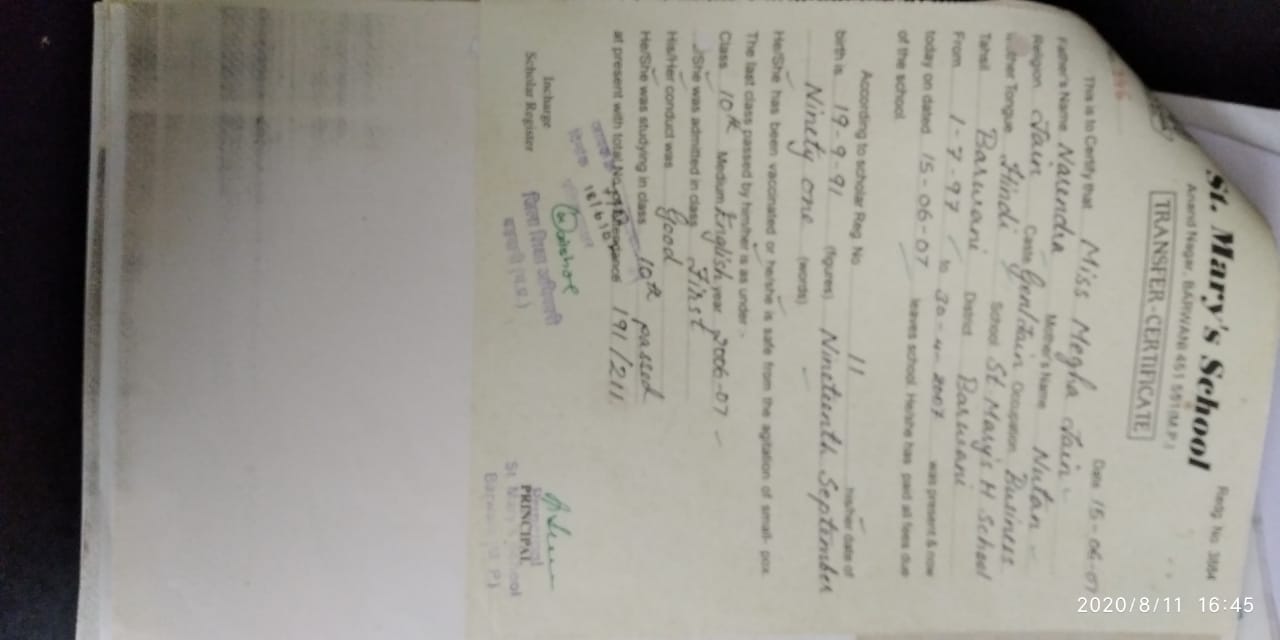 Redg. No. 3884
St. Mary's School
Anand Nagar, BARWANI 451 551 (M.P.)
TRANSFER-CERTIFICATE
Date 15-06-07
This is to Certify that Miss Megha Jain
Father's Name Narendra Mother's Name Nutan
Religion Jain Caste Gen/Jain Occupation Business
Mother Tongue Hindi School St Mary's H School
Tahsil Barwani District Barwani
From 1-7-97 to 30-4-2007 was present & now
today on dated 15-06-07 leaves school. He/she has paid all fees due
of the school.
According to scholar Reg. No. 11 his/her date of
birth is 19-9-91 (figures) Nineteenth September
Ninety one (words)
He/She has been vaccinated or he/she is safe from the agitation of small-pox.
The last class passed by him/her is as under:-
Class 10th Medium English year 2006-07
/She was admitted in class First
His/Her conduct was Good
He/She was studying in class 10th passed
at present with total No. 191/211
Incharge
Scholar Register
जिला शिक्षा अधिकारी
बड़वानी (म.प्र.)
PRINCIPAL
St. Mary's School
Barwani (M.P.)
2020/8/11 16:45